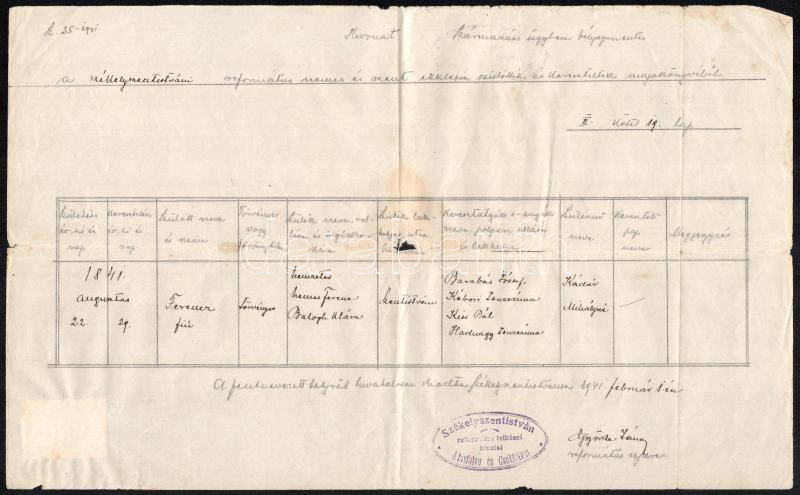 Sz. 25-1941.
Kivonat Származási ügyben bélyegmentes
a székelyszentistváni református nemes és szent ekklesia születtek és kereszteltek anyakönyvéből
II. kötet 19. lap.
Születés év, hó és nap
Keresztelés év, hó és nap
Szülött neve és neme
Törvényes vagy törvénytelen
Szülők neve, vallása és
Szülők lakhelye,
Keresztatyák s-anyák neve, polgári állása és lakhelye
neve
Keresztelő pap neve
Megjegyzés
1841.
augusztus
22. 29.
Ferencz
fiú
törvényes
nemzetes
Nemes Ferenc
Balogh Klára
szentistván
Barabás József
Kóbori Zsuzsánna
Kiss Pál
Hadnagy Zsuzsánna
Kádár
Mihályné
—
A fentnevezett helyről hivatalosan kiadta Székelyszentistvánon 1941. február 1-én
Székelyszentistván
református lelkészi
hivatal
Atosfalva és Csókfalva
Györke János
református
darabanth